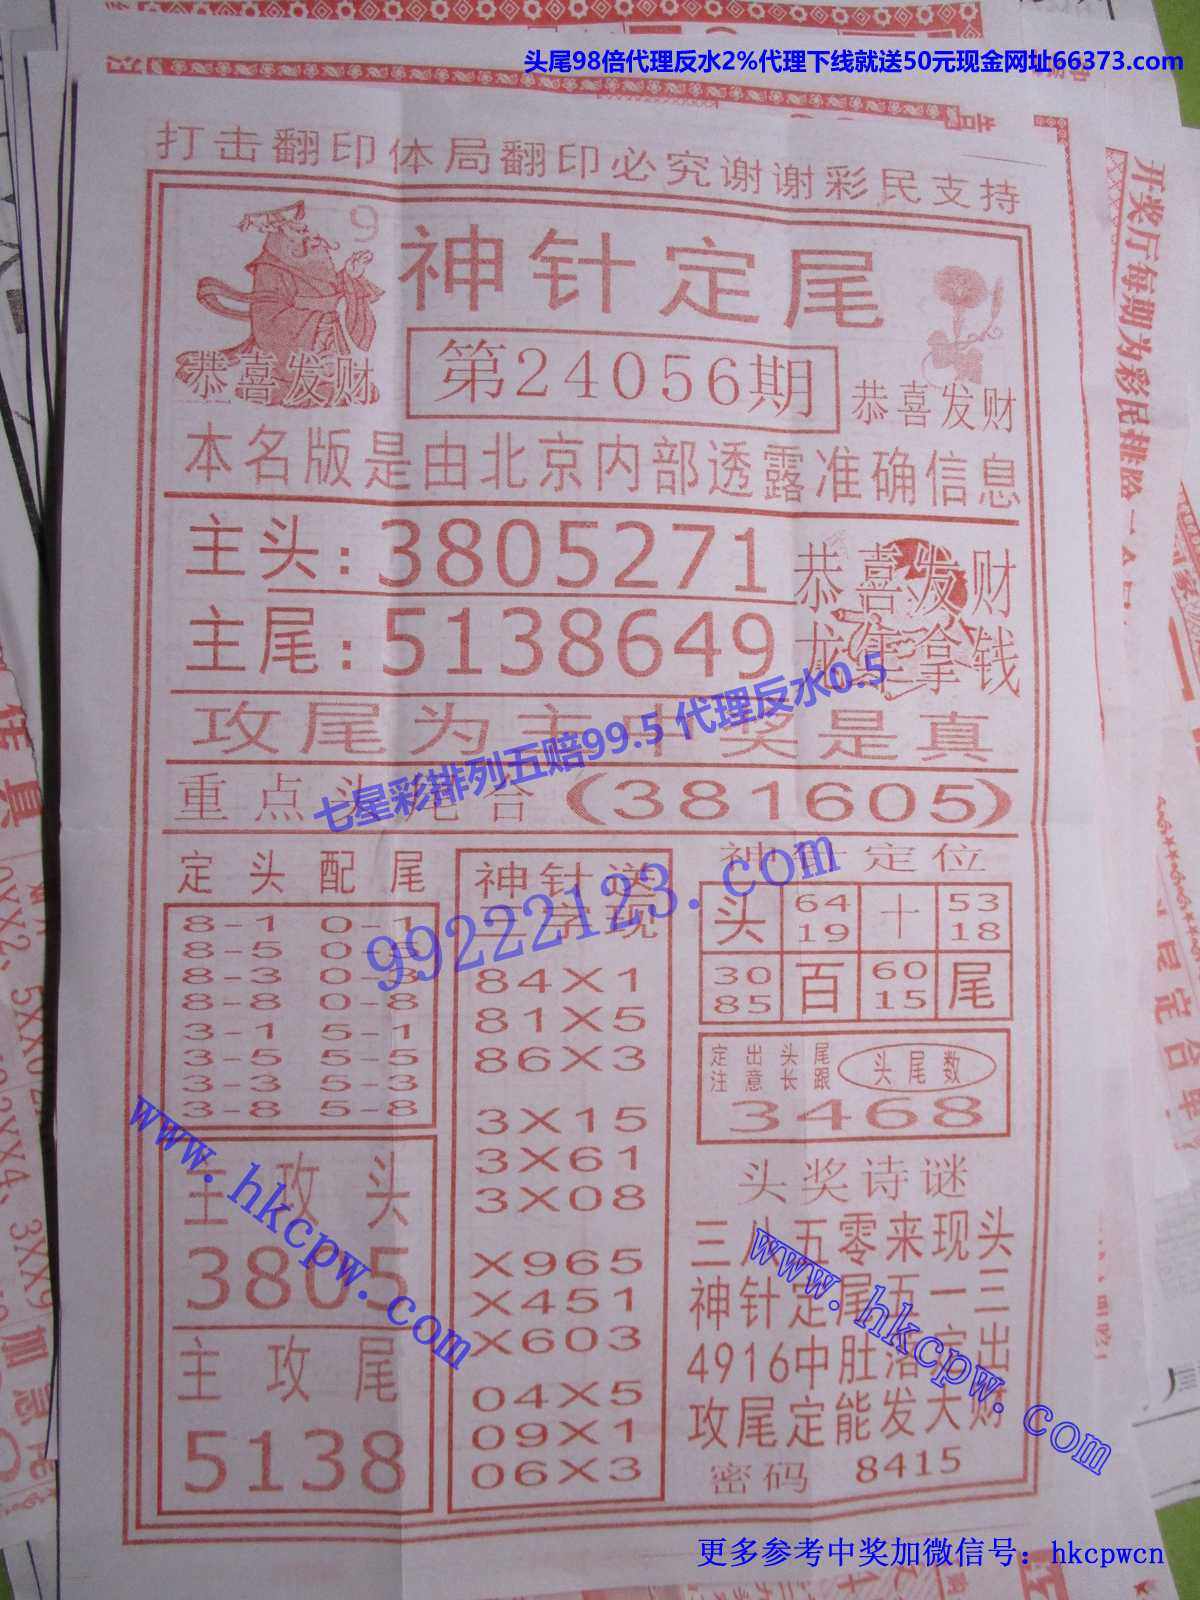 头尾98倍代理反水2%代理下线就送50元现金网址66373.com
打击翻印体局翻印必究谢谢彩民支持
9
神针定尾
恭喜发财
第24056期
恭喜发财
本名版是由北京内部透露准确信息
主头:3805271
恭喜发财
主尾:5138649
龙年拿钱
攻尾为主中奖是真
七星彩排列五赔99.5 代理反水0.5
重点头尾合(381605)
99222123.com
定头配尾
8-1 0-1
8-5 0-5
8-3 0-3
8-8 0-8
3-1 5-1
3-5 5-5
3-3 5-3
3-8 5-8
主攻头
3805
主攻尾
5138
神针送
三字现
84X1
81X5
86X3
3X15
3X61
3X08
X965
X451
X603
04X5
09X1
06X3
神针定位
头 64 十 53
19 18
30 百 60 尾
85 15
定出头尾
注意长跟
头尾数
3468
头奖诗谜
三八五零来现头
神针定尾五一三
4916中肚落定出
攻尾定能发大财
密码 8415
www.hkcpw.com
www.hkcpw.com
更多参考中奖加微信号：hkcpwcn
开奖厅每期为彩民排除一个